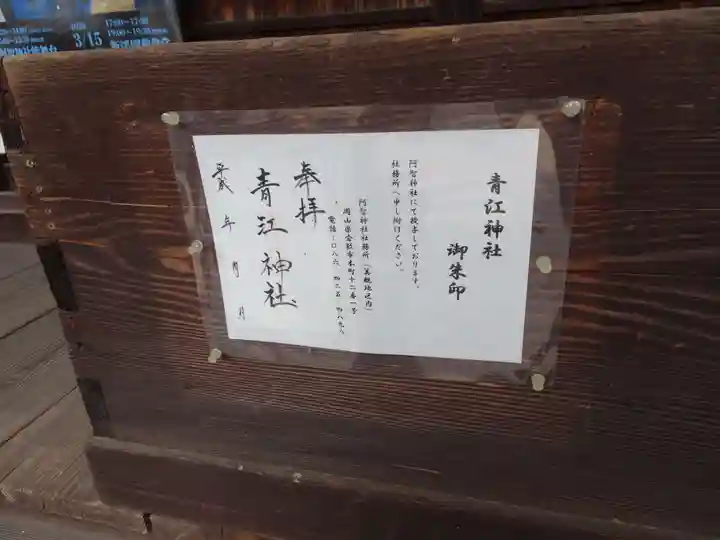 青江神社
御朱印
阿智神社にて授与しております。
社務所へ申し付けください。
阿智神社社務所（美観地区内）
岡山県倉敷市本町十二番一号
電話：〇八六・四二五・四八九八
奉拝
青江神社
平成　年　月　日
3/15
17:00〜
19:00〜19:30